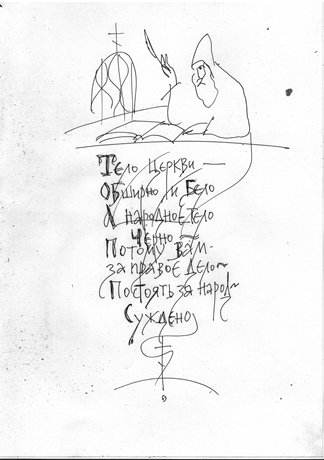 Тело Церкви —
Обширно и Бело
Х народное Тело
Черно —
Потому Вам-
за правое Дело
Постоять за народ
Суждено